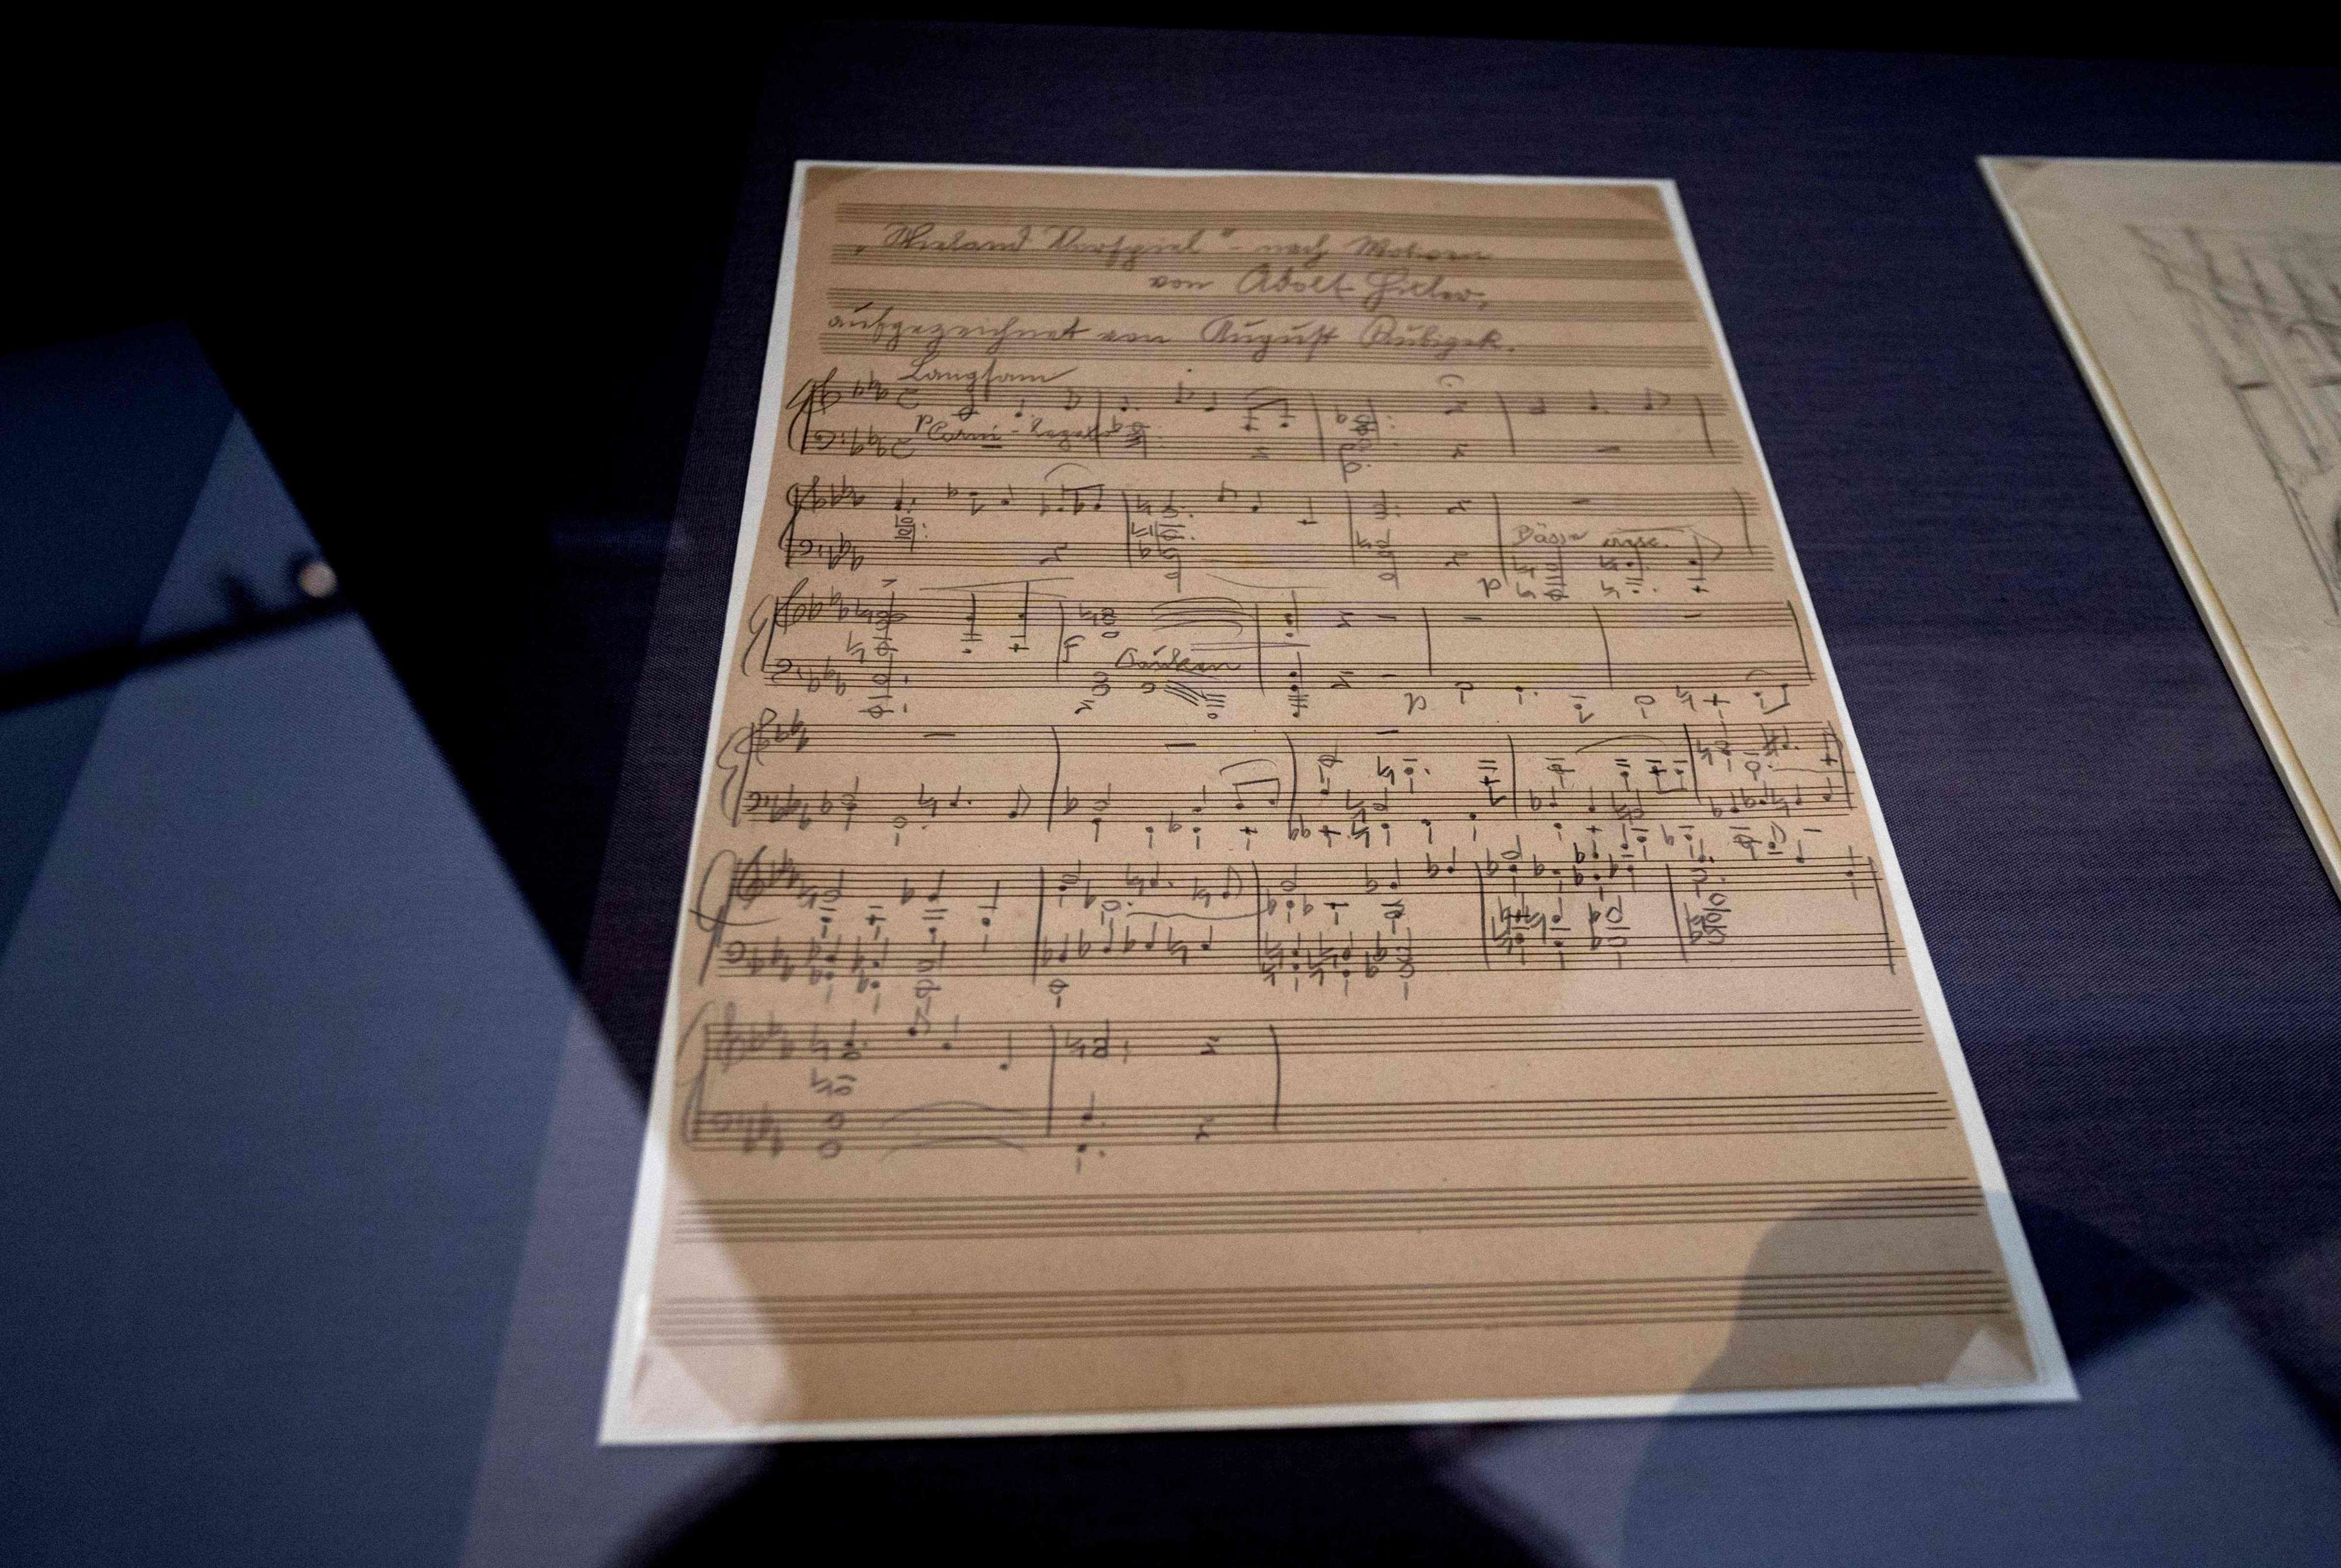 „Wieland Vorspiel" - nach Motiven
von Adolf Hitler,
aufgezeichnet von August Kubizek.
Langsam
p Corni
Bässe
f
Pauken